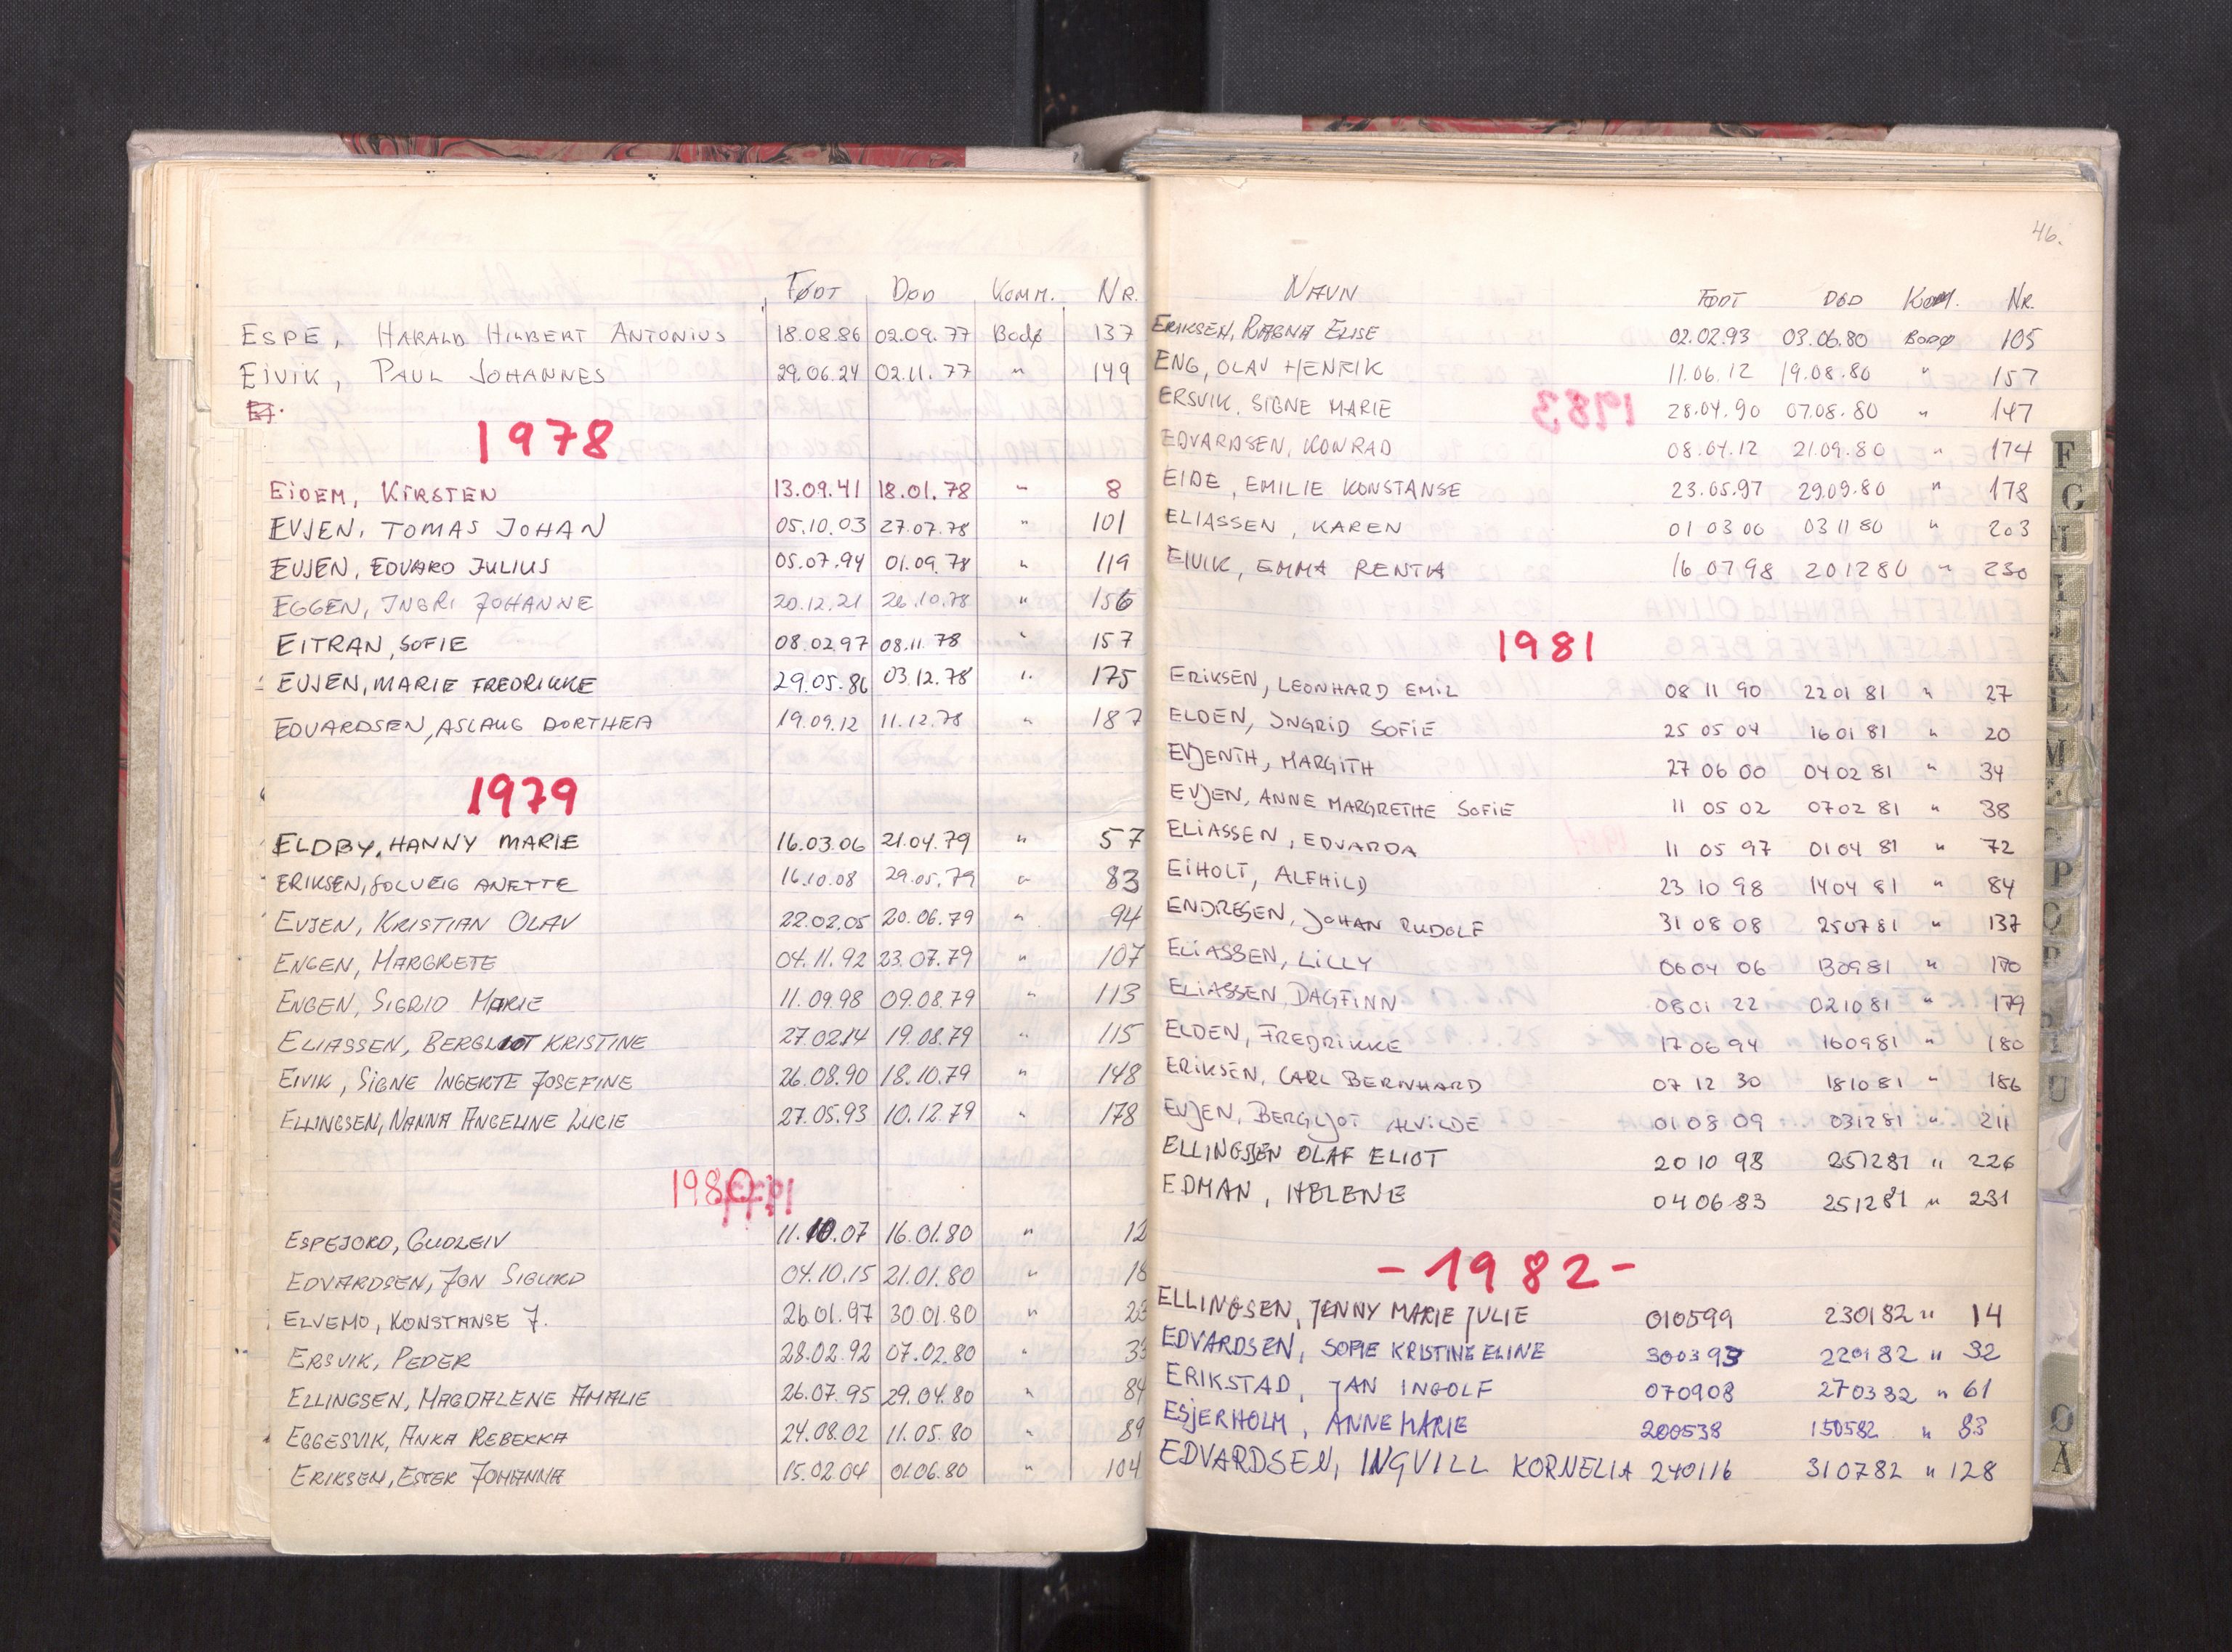 FØDT DØD KOMM. NR.
ESPE, HARALD HILBERT ANTONIUS 18.08.86 02.09.77 Bodø 137
EIVIK, PAUL JOHANNES 29.06.24 02.11.77 " 149
1978
EIDEM, KIRSTEN 13.09.41 18.01.78 " 8
EVJEN, TOMAS JOHAN 05.10.03 27.07.78 " 101
EVJEN, EDVARD JULIUS 05.07.94 01.09.78 " 119
EGGEN, INGRI JOHANNE 20.12.21 26.10.78 " 156
EITRAN, SOFIE 08.02.97 08.11.78 " 157
EVJEN, MARIE FREDRIKKE 29.05.86 03.12.78 " 175
EDVARDSEN, ASLAUG DORTHEA 19.09.12 11.12.78 " 187
1979
ELDBY, HANNY MARIE 16.03.06 21.04.79 " 57
ERIKSEN, SOLVEIG ANETTE 16.10.08 29.05.79 " 83
EVJEN, KRISTIAN OLAV 22.02.05 20.06.79 " 94
ENGEN, MARGRETE 04.11.92 23.07.79 " 107
ENGEN, SIGRID MARIE 11.09.98 09.08.79 " 113
ELIASSEN, BERGLIOT KRISTINE 27.02.14 19.08.79 " 115
EIVIK, SIGNE INGERTE JOSEFINE 26.08.90 18.10.79 " 148
ELLINGSEN, NANNA ANGELINE LUCIE 27.05.93 10.12.79 " 178
1980
ESPEJORD, GUDLEIV 11.10.07 16.01.80 " 12
EDVARDSEN, JON SIGURD 04.10.15 21.01.80 " 18
ELVEMO, KONSTANSE J. 26.01.97 30.01.80 " 23
ERSVIK, PEDER 28.02.92 07.02.80 "
ELLINGSEN, MAGDALENE AMALIE 26.07.95 29.04.80 " 84
EGGESVIK, ANKA REBEKKA 24.08.02 11.05.80 " 89
ERIKSEN, ESTER JOHANNA 15.02.04 01.06.80 " 104
46.
NAVN FØDT DØD KOM. NR.
ERIKSEN, RAGNA ELISE 02.02.93 03.06.80 BODØ 105
ENG, OLAV HENRIK 11.06.12 19.08.80 " 157
ERSVIK, SIGNE MARIE 28.04.90 07.08.80 " 147
EDVARDSEN, KONRAD 08.04.12 21.09.80 " 174
EIDE, EMILIE KONSTANSE 23.05.97 29.09.80 " 178
ELIASSEN, KAREN 01 03 00 03 11 80 " 203
EIVIK, EMMA RENTHA 16 07 98 20 12 80 " 230
1981
ERIKSEN, LEONHARD EMIL 08 11 90 22 01 81 " 27
ELDEN, INGRID SOFIE 25 05 04 16 01 81 " 20
EVJENTH, MARGITH 27 06 00 04 02 81 " 34
EVJEN, ANNE MARGRETHE SOFIE 11 05 02 07 02 81 " 38
ELIASSEN, EDVARDA 11 05 97 01 04 81 " 72
EIHOLT, ALFHILD 23 10 98 14 04 81 " 84
ENDRESEN, JOHAN RUDOLF 31 08 08 25 07 81 " 137
ELIASSEN, LILLY 06 04 06 13 09 81 " 170
ELIASSEN, DAGFINN 08 01 22 02 10 81 " 179
ELDEN, FREDRIKKE 17 06 94 16 09 81 " 180
ERIKSEN, CARL BERNHARD 07 12 30 18 10 81 " 186
EVJEN, BERGLJOT ALVILDE 01 08 09 03 12 81 " 211
ELLINGSEN OLAF ELIOT 20 10 98 25 12 81 " 226
EDMAN, HELENE 04 06 83 25 12 81 " 231
-1982-
ELLINGSEN, JENNY MARIE JULIE 010599 230182 " 14
EDVARDSEN, SOFIE KRISTINE ELINE 300393 220182 " 32
ERIKSTAD, JAN INGOLF 070908 270382 " 61
ESJERHOLM, ANNE MARIE 200538 150582 " 83
EDVARDSEN, INGVILL KORNELIA 240116 310782 " 128
F
G
H
I
J
K
L
M
P
U
Ø
Å